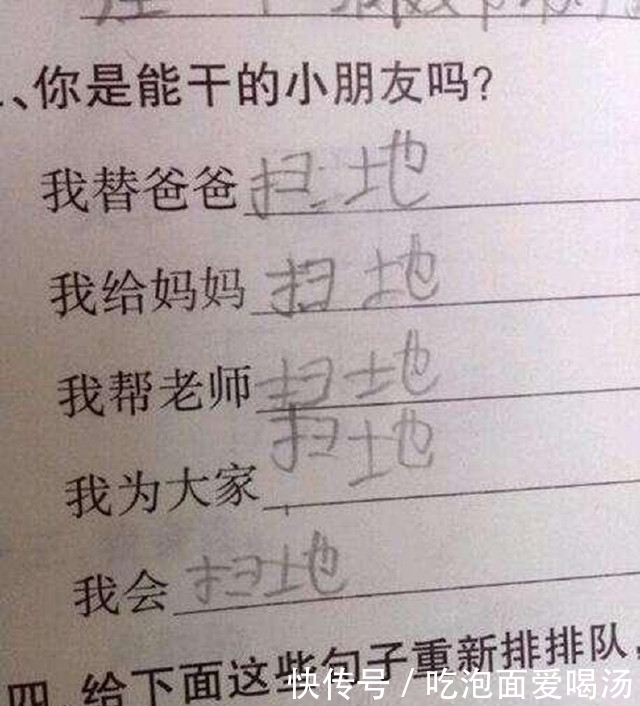 、你是能干的小朋友吗?
我替爸爸扫地
我给妈妈扫地
我帮老师扫地
我为大家扫地
我会扫地
四、给下面这些句子重新排排队,
快传号/吃泡面爱喝汤